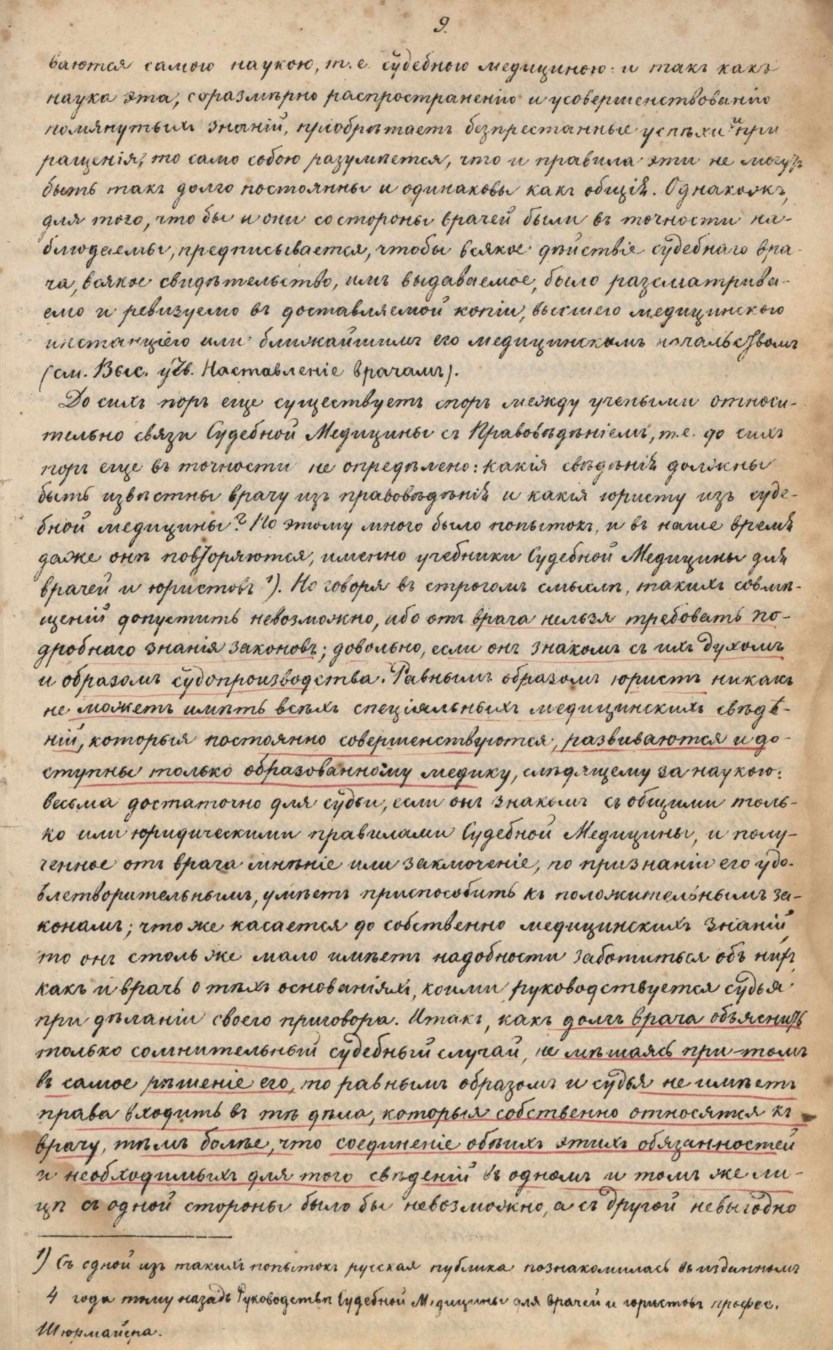 9.
ваются самою наукою, т. е. судебною медициною: и такъ какъ
наука эта, соразмѣрно распространенію и усовершенствованію
помянутыхъ знаній, пріобрѣтаетъ безпрестанные успѣхи и при
ращенія, то само собою разумѣется, что и правила эти не могутъ
быть такъ долго постоянны и одинаковы какъ общія. Однакожъ,
для того, что бы и они со стороны врачей были въ точности на-
блюдаемы, предписывается, чтобы всякое дѣйствіе судебнаго вра-
ча, всякое свидѣтельство, имъ выдаваемое, было разсматрива-
емо и ревизуемо въ доставляемой копіи, высшею медицинскою
инстанціею или ближайшимъ его медицинскимъ начальствомъ
(см. Выс. утв. Наставленіе врачамъ).
До сихъ поръ еще существуетъ споръ между учеными относи-
тельно связи Судебной Медицины съ Правовѣдѣніемъ, т. е. до сихъ
поръ еще въ точности не опредѣлено: какія свѣдѣнія должны
быть извѣстны врачу изъ правовѣдѣнія и какія юристу изъ суде-
бной медицины? По этому много было попытокъ, и въ наше время
даже онѣ повторяются, именно учебники Судебной Медицины для
врачей и юристовъ 1). Но говоря въ строгомъ смыслѣ, такихъ совмѣ-
щеній допустить невозможно, ибо отъ врача нельзя требовать по-
дробнаго знанія законовъ; довольно, если онъ знакомъ съ ихъ духомъ
и образомъ судопроизводства. Равнымъ образомъ юристъ никакъ
не можетъ имѣть всѣхъ спеціяльныхъ медицинскихъ свѣдѣ-
ній, которыя постоянно совершенствуются, развиваются и до-
ступны только образованному медику, слѣдящему за наукою:
весьма достаточно для судьи, если онъ знакомъ съ общими толь-
ко или юридическими правилами Судебной Медицины, и полу-
ченное отъ врача мнѣніе или заключеніе, по признаніи его удо-
влетворительнымъ, умѣетъ приспособить къ положительнымъ за-
конамъ; что же касается до собственно медицинскихъ знаній
то онъ столь же мало имѣетъ надобности заботиться объ нихъ
какъ и врачь о тѣхъ основаніяхъ, коими руководствуется судья
при дѣланіи своего приговора. Итакъ, какъ долгъ врача объяснить
только сомнительный судебный случай, не мѣшаясь при томъ
въ самое рѣшеніе его, то равнымъ образомъ и судья не имѣетъ
права входить въ тѣ дѣла, которыя собственно относятся къ
врачу, тѣмъ болѣе, что соединеніе обѣихъ этихъ обязанностей
и необходимыхъ для того свѣденій въ одномъ и томъ же ли-
цѣ съ одной стороны было бы невозможно, а съ другой невыгодно
1) Съ одной изъ такихъ попытокъ русская публика познакомилась въ изданномъ
4 года тому назадъ Руководствѣ Судебной Медицины для врачей и юристовъ профес.
Шюрмайера.